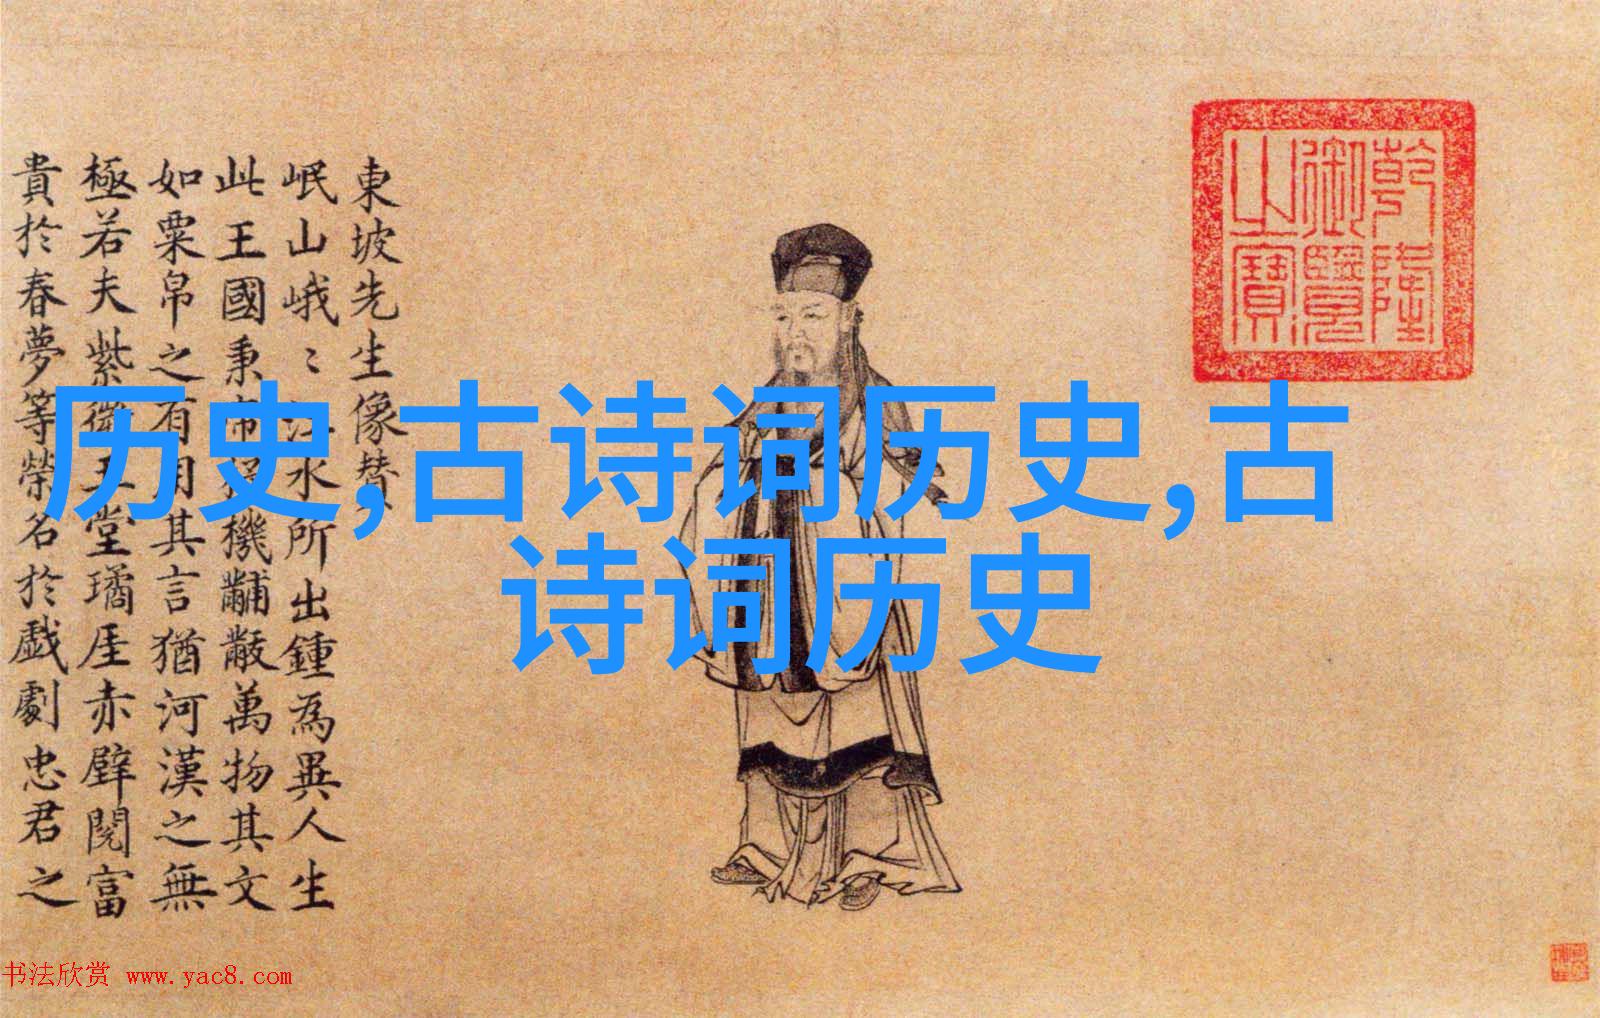 東坡先生像替
岷山峨〻江水所出鍾為異人生
此王國秉帝杼機黼黻萬物其文
如粟帛之有用其言猶河漢之無
極若夫紫微玉堂璚厓赤壁閱富
貴於春夢等榮名於戲劇忠君之
乾隆
御覽
之寶
历史,古诗词历史,古
诗词历史
书法欣赏 www.yac8.com